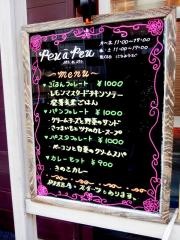 Peu à Peu
11:00~19:00
11:00~17:00
~menu~
ごはんプレート ¥1000
レモンマスタードチキンソテー
ごはん
パンプレート ¥1000
クリームチーズと野菜のサンド
さつまいもとツナのカレースープ
パスタプレート ¥1000
ベーコンと白菜のクリームパスタ
カレーセット ¥900
きのこカレー
スイーツもあります。